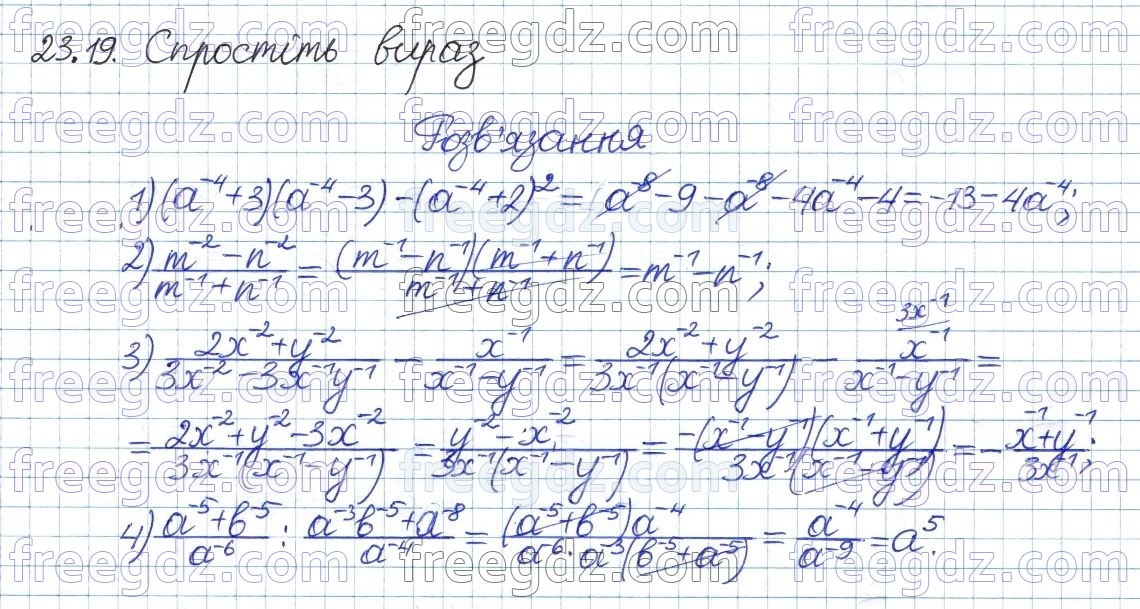 23.19. Спростіть вираз
Розв'язання
1) (a⁻⁴+3)(a⁻⁴-3)-(a⁻⁴+2)² = a⁻⁸-9-a⁻⁸-4a⁻⁴-4=-13-4a⁻⁴;
2) (m⁻²-n⁻²)/(m⁻¹+n⁻¹) = ((m⁻¹-n⁻¹)(m⁻¹+n⁻¹))/(m⁻¹+n⁻¹) = m⁻¹-n⁻¹;
3) (2x⁻²+y⁻²)/(3x⁻²-3x⁻¹y⁻¹) - x⁻¹/(x⁻¹-y⁻¹) = (2x⁻²+y⁻²)/(3x⁻¹(x⁻¹-y⁻¹)) - x⁻¹ ^(3x⁻¹)/(x⁻¹-y⁻¹) =
= (2x⁻²+y⁻²-3x⁻²)/(3x⁻¹(x⁻¹-y⁻¹)) = (y⁻²-x⁻²)/(3x⁻¹(x⁻¹-y⁻¹)) = (-(x⁻¹-y⁻¹)(x⁻¹+y⁻¹))/(3x⁻¹(x⁻¹-y⁻¹)) = - (x⁻¹+y⁻¹)/(3x⁻¹);
4) (a⁻⁵+b⁻⁵)/a⁻⁶ : (a⁻³b⁻⁵+a⁻⁸)/a⁻⁴ = ((a⁻⁵+b⁻⁵)a⁻⁴)/(a⁻⁶·a⁻³(b⁻⁵+a⁻⁵)) = a⁻⁴/a⁻⁹ = a⁵.
freegdz.com